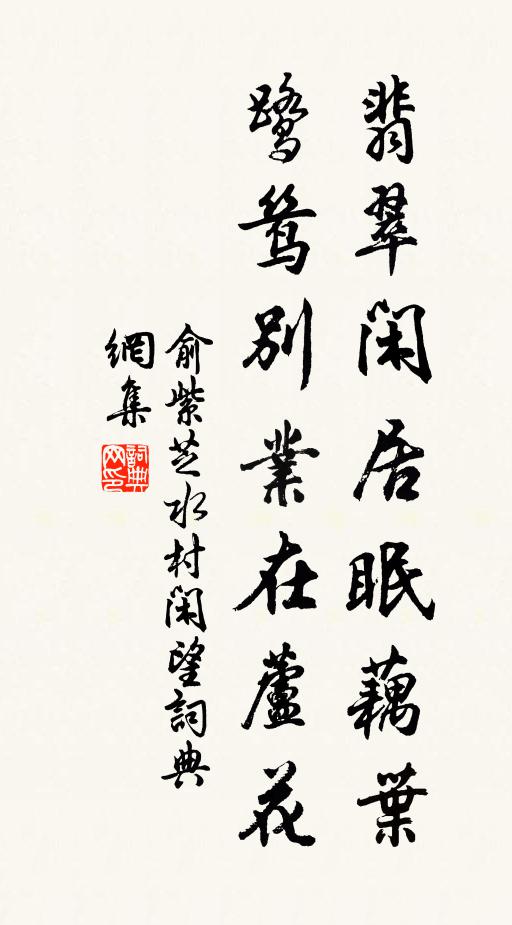 翡翠閑居眠藕葉
鷺鷥別業在蘆花
俞紫芝水村閑望詞典
網集
詞典网印